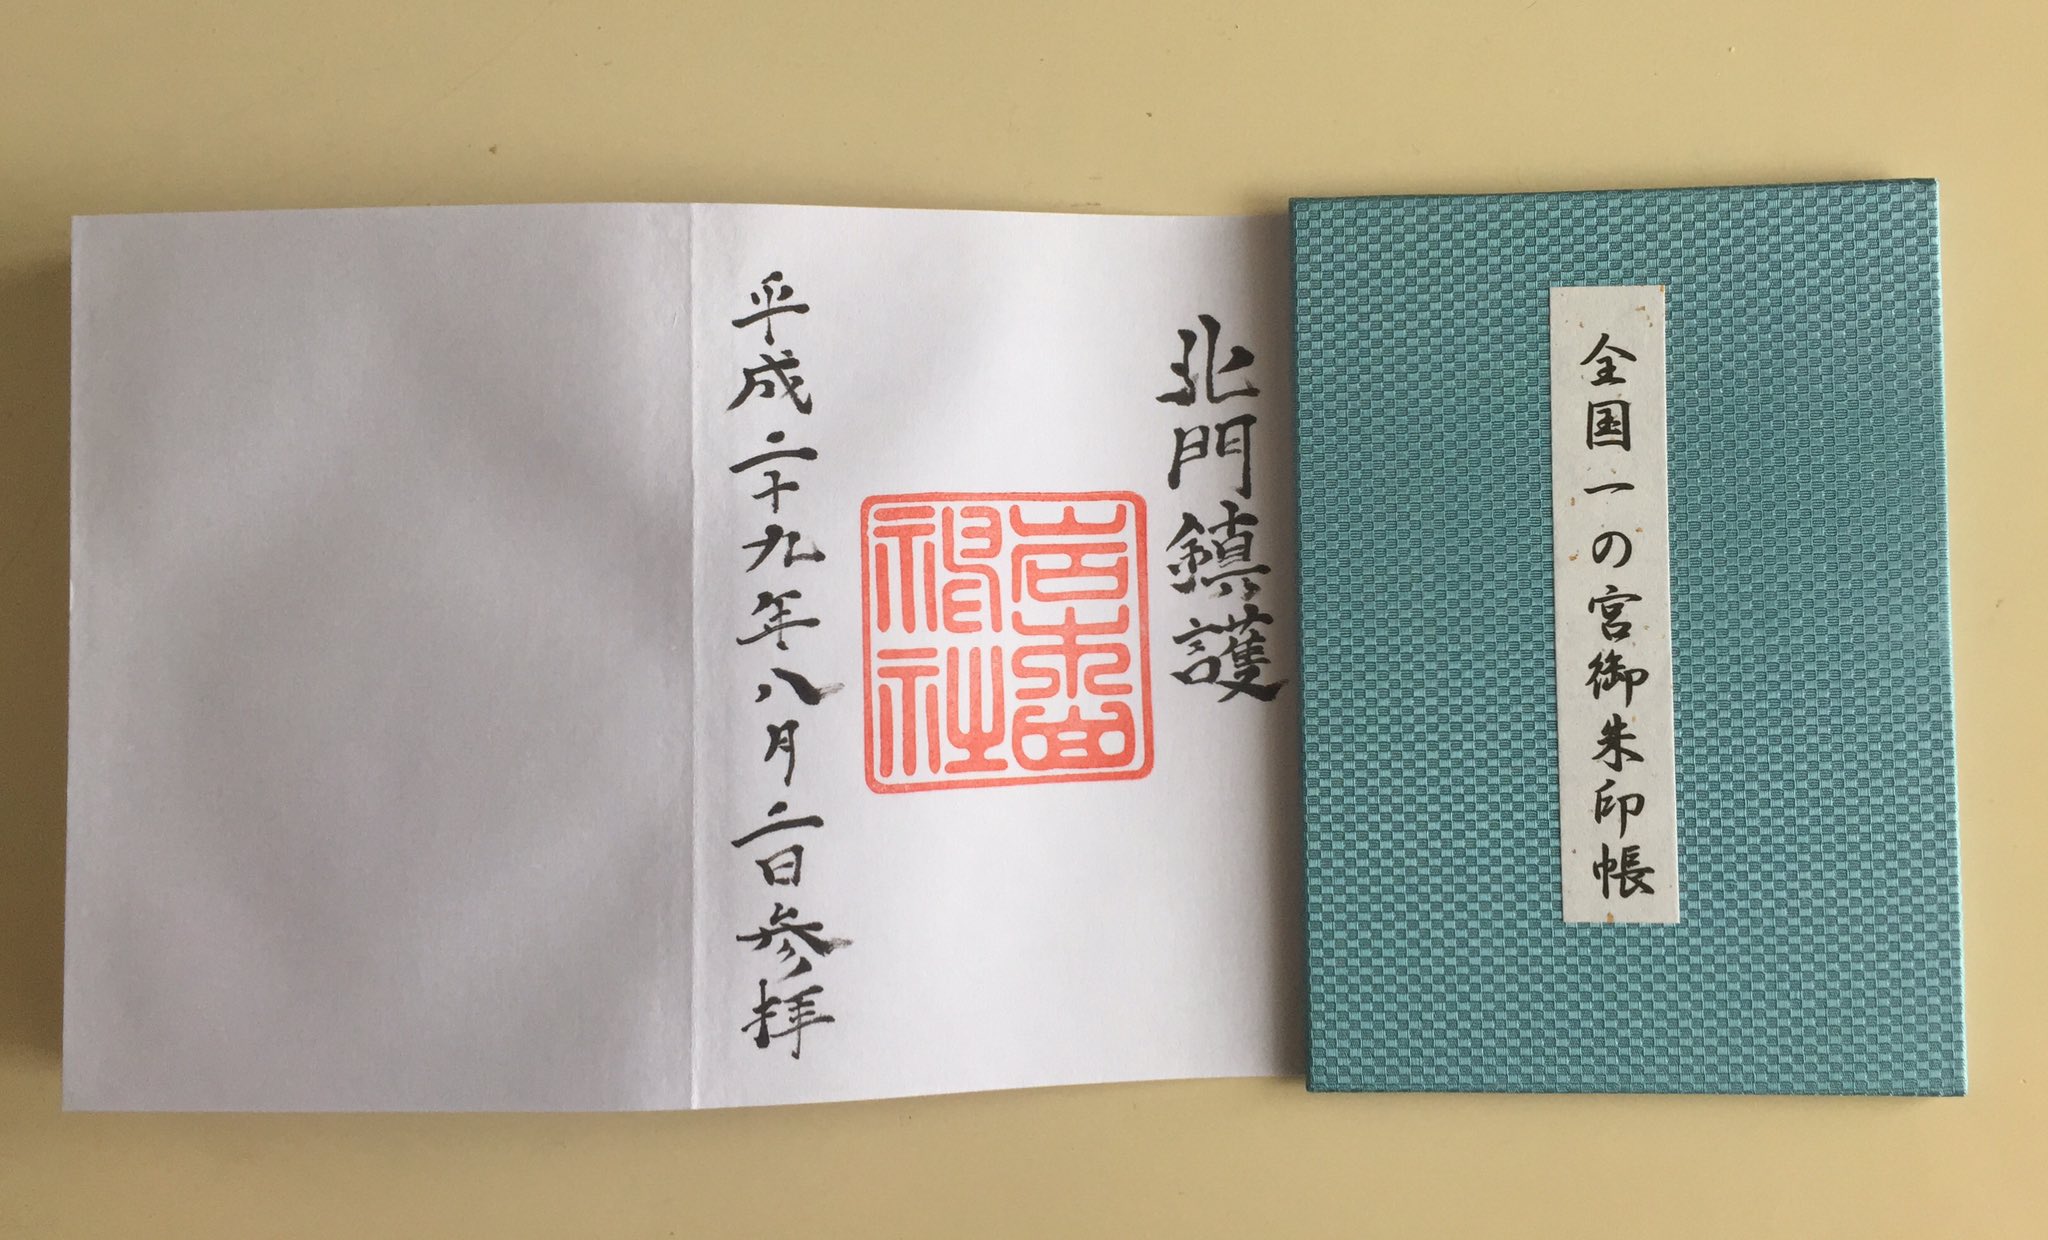 全国一の宮御朱印帳
北門鎮護
岩木山
神社
平成二十九年八月二日参拝